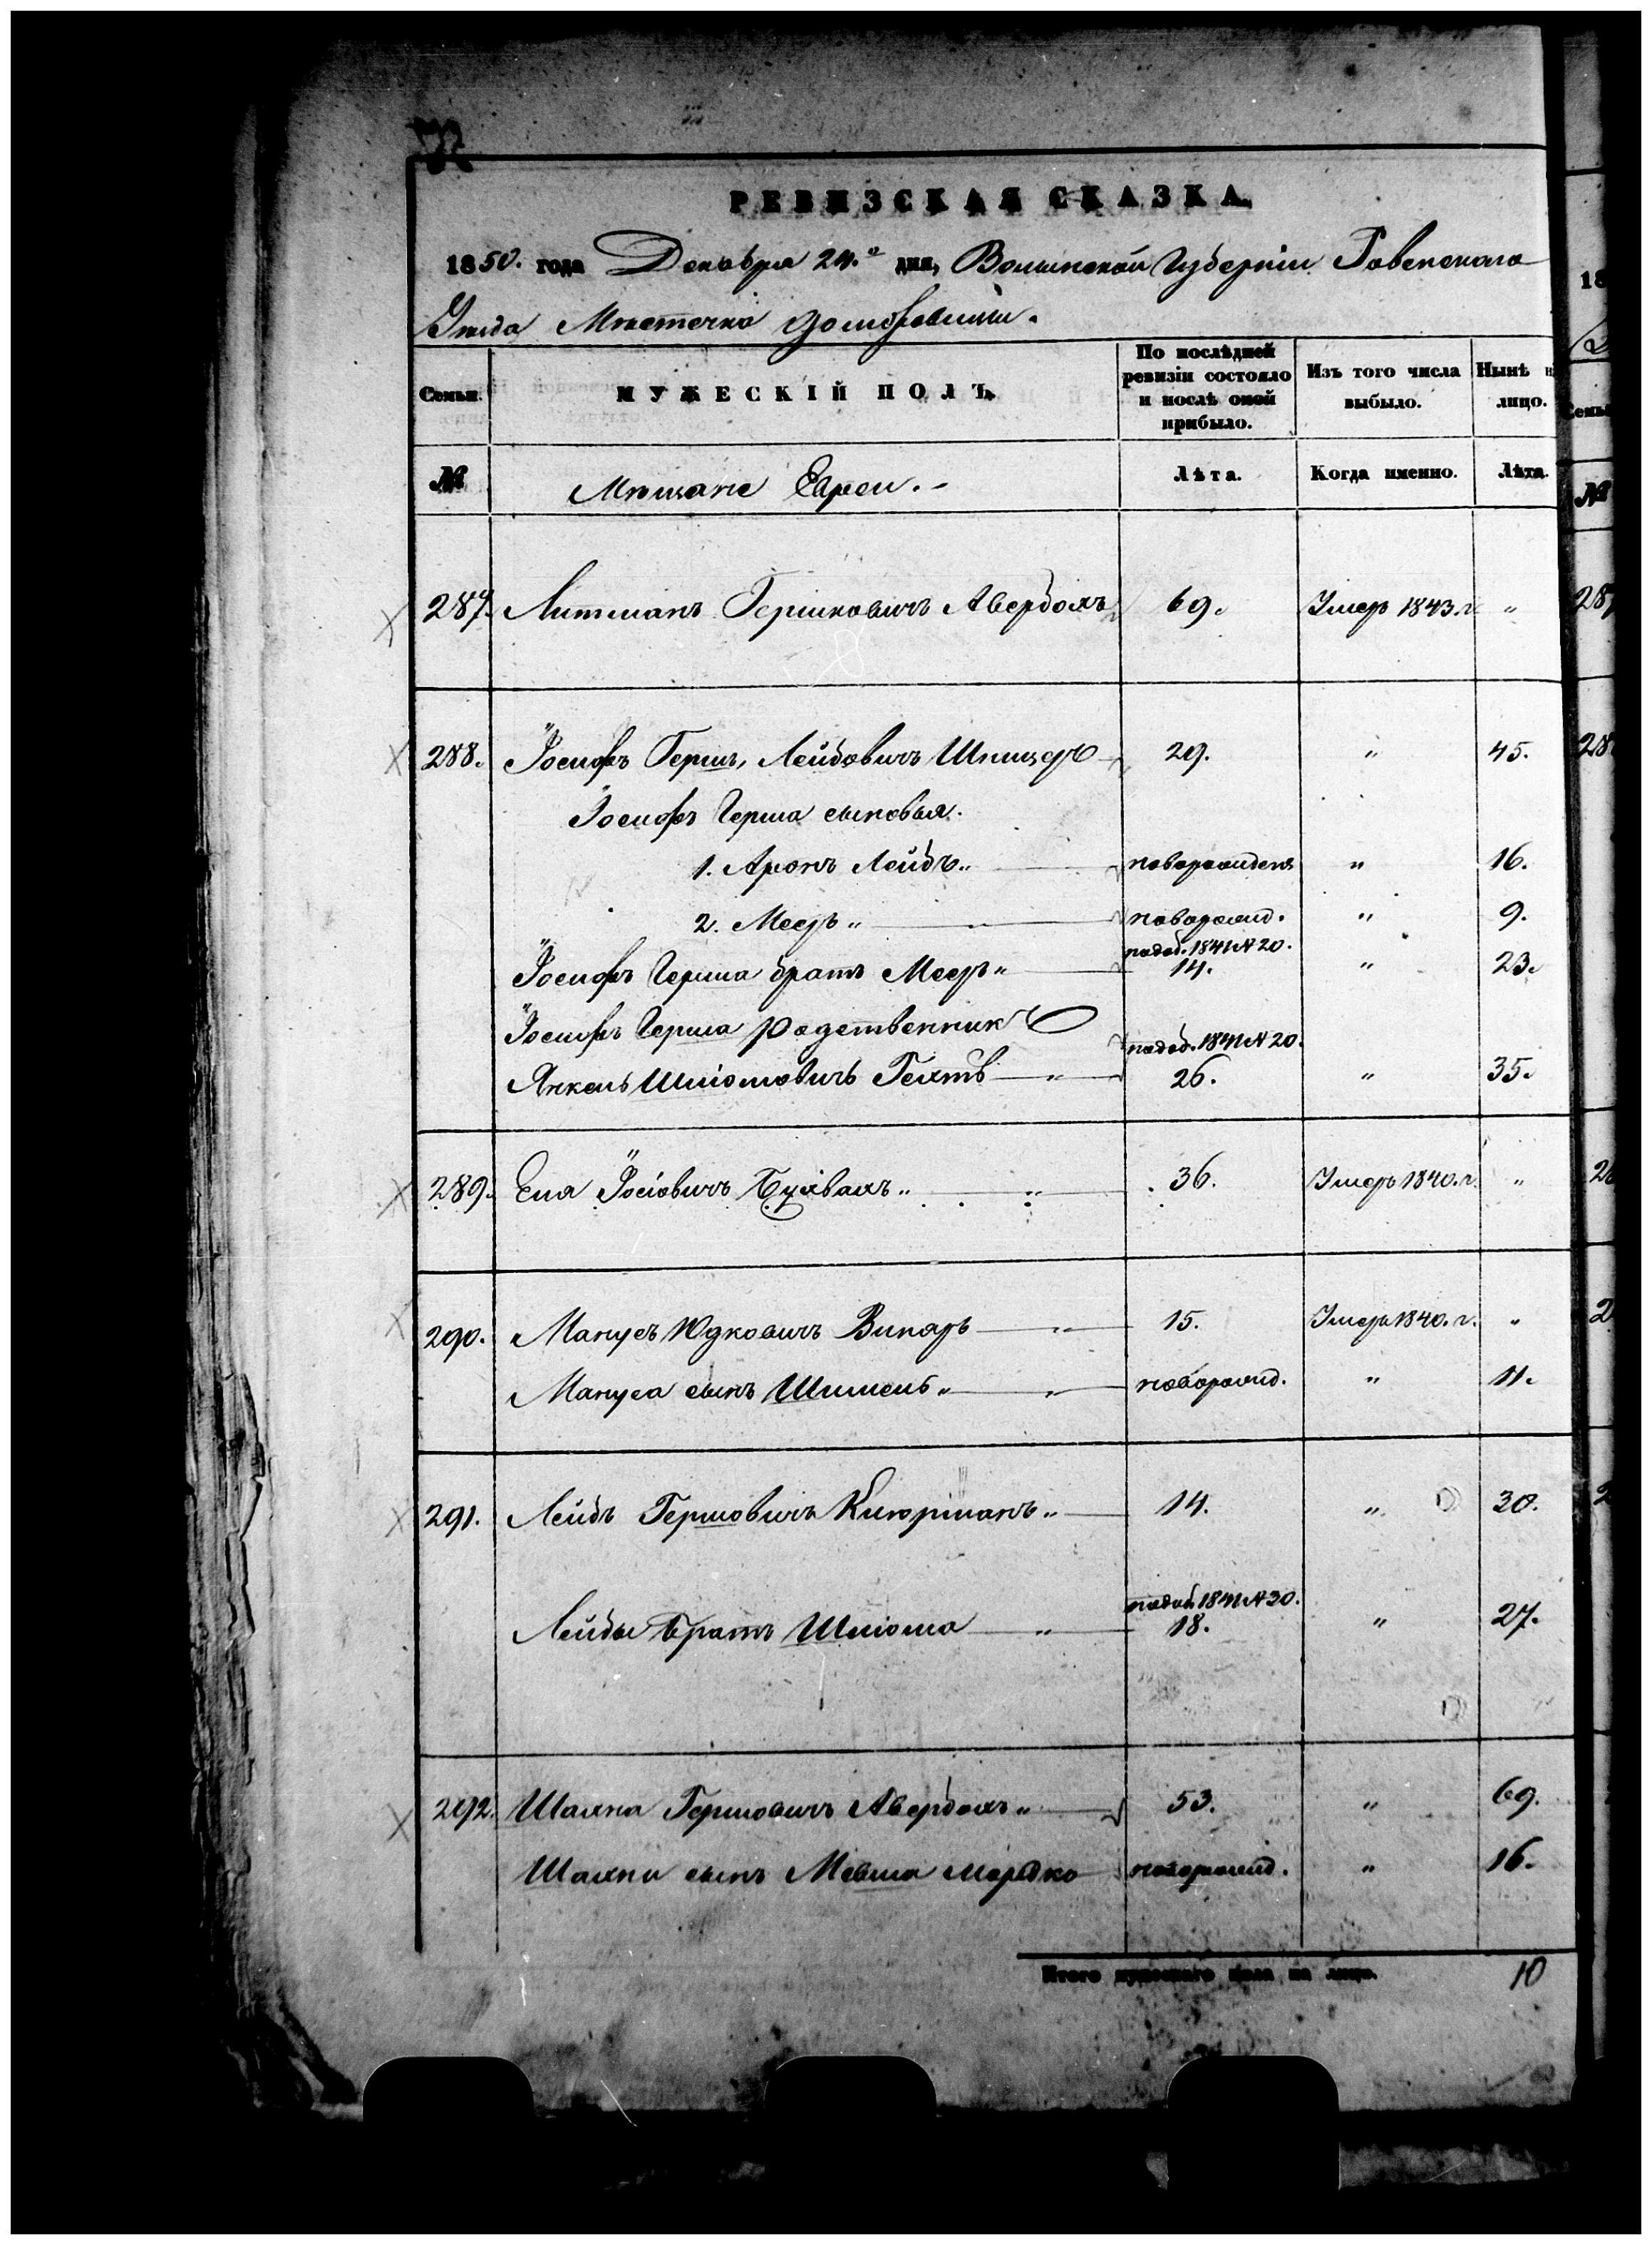 РЕВИЗСКАЯ СКАЗКА.
1850. года Декабря 24.го дня, Волынской Губерніи Ровенскаго
Уѣзда Мѣстечка Домбровицы.
Семьи. МУЖЕСКІЙ ПОЛЪ. По послѣдней ревизіи состояло и послѣ оной прибыло. Изъ того числа выбыло. Нынѣ на лицо.
№ Мѣщане Евреи. Лѣта. Когда именно. Лѣта.
287. Литманъ Гершковичъ Авербохъ 69. Умеръ 1843. г. "
288. Іосифъ Гершъ, Лейбовичъ Шпицеръ 29. " 45.
Іосифъ Герша сыновья.
1. Аронъ Лейбъ " новорожден " 16.
2. Мееръ " новорожд. " 9.
Іосифъ Герша братъ Мееръ " 1841 № 20. 14. " 23.
Іосифъ Герша родственникъ
Янкель Шліомовичъ " 1841 № 20. 26. " 35.
289. Еля Іосіовичъ " 36. Умеръ 1840. г. "
290. Манусъ Юдковичъ Винаръ " 15. Умеръ 1840. г. "
Мануса сынъ Шимель " новорожд. " 11.
291. Лейбъ Гершовичъ " 14. " 30.
Лейбы братъ Шліома " 1841 № 20. 18. " 27.
292. Шахна Гершовичъ Авербохъ " 53. " 69.
Шахны сынъ Мовша Мордко новорожд. " 16.
Итого мужескаго пола на лицо. 10